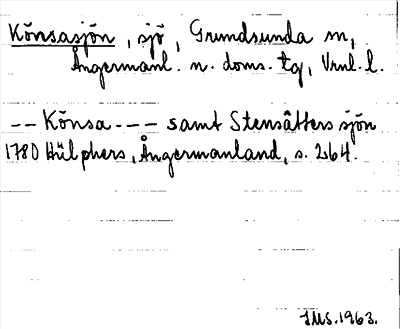 Könsasjön, sjö, Grundsunda sn,
Ångermanl. n. doms. tg, Vnl. l.
-- Könsa --- samt Stensätters sjön
1780 Hülphers, Ångermanland, s. 264.
IMS. 1963.